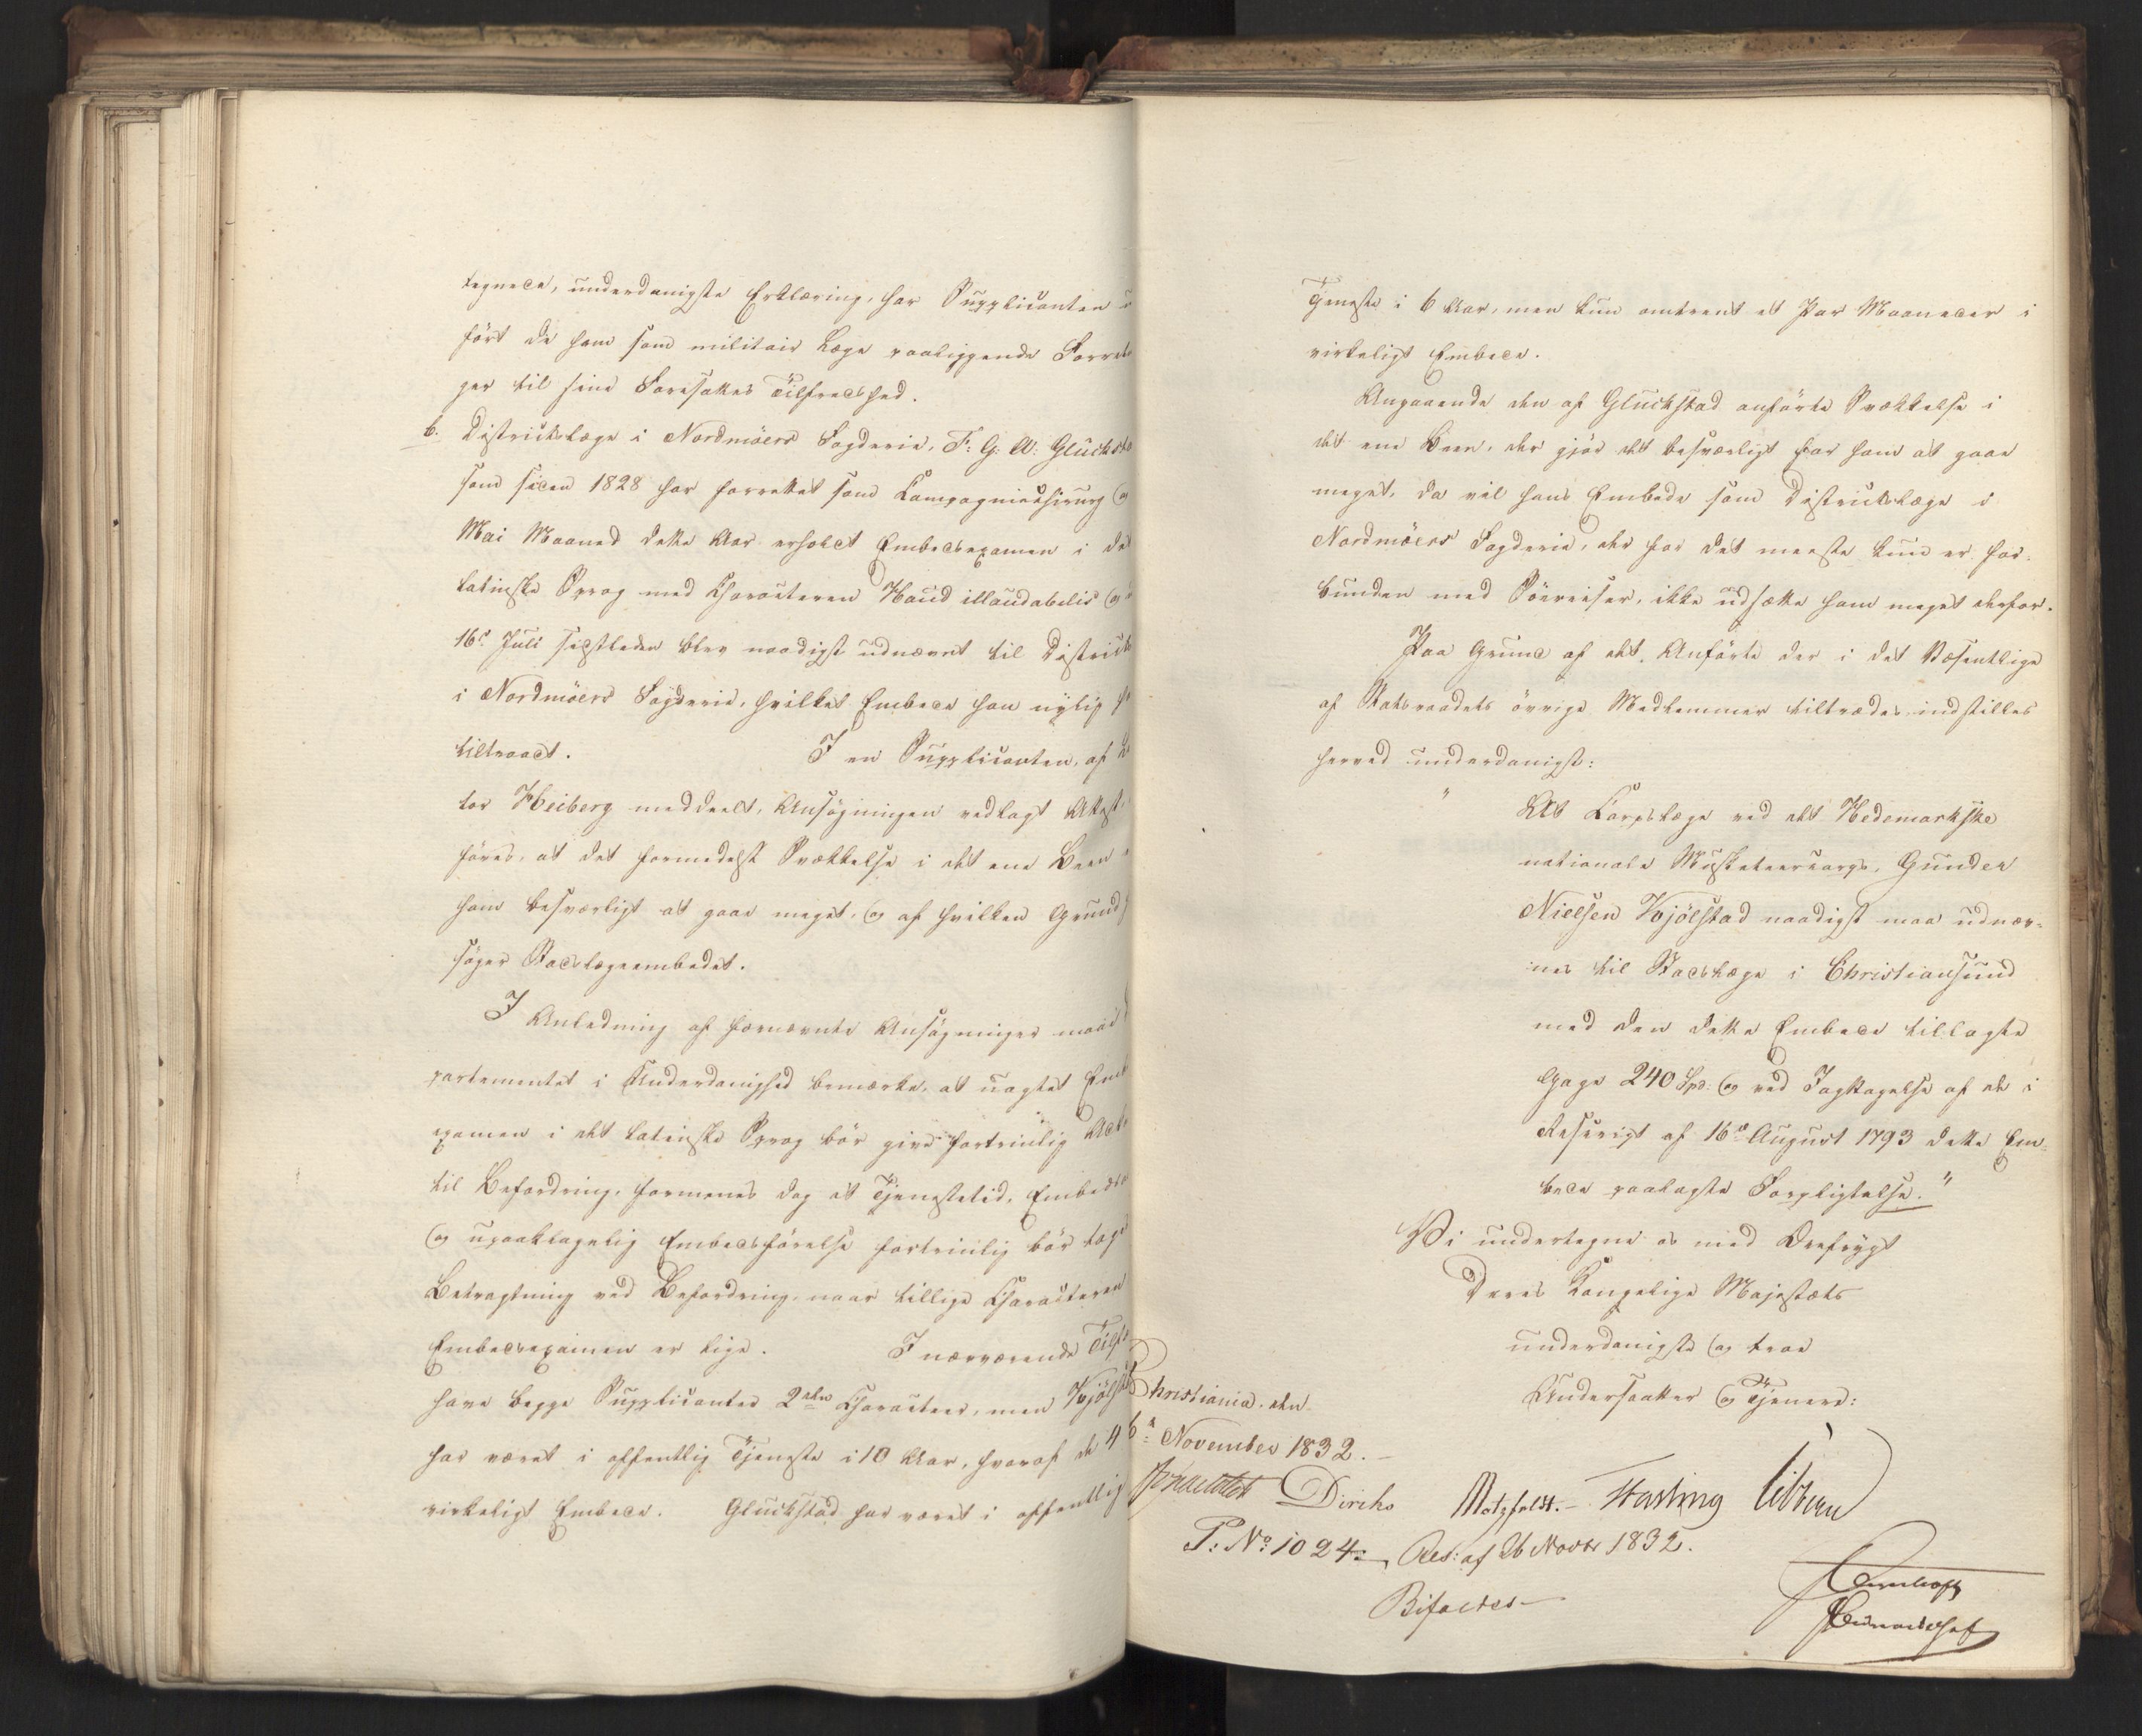 tegnede, underdanigste Erklæring, har Supplicanten
fört de ham som militair Læge paaliggende Forret
ger til sine Foresattes Tilfredshed.
b. Districtslæge i Nordmöers Fogderie, F: G: A: Gluckst
som siden 1828 har forrettet som Compagniechirurg og
Mai Maaned dette Aar erholdt Embedsexamen i det
latinske Sprog med Characteren Haud illaudabilis og
16d Juli sidstleden blev naadigst udnævnt til District
i Nordmöers Fogderie, hvilket Embede han nylig h
tiltraadt. I en Supplicanten, af Do
tor Heiberg meddeelt, Ansögningen vedlagt Attest,
föres, at det formedelst Svækkelse i det ene Been
ham besværligt at gaae meget, og af hvilken Grund h
söger Stadslægeembedet.
I Anledning af fornævnte Ansögninger maae
partementet i Underdanighed bemærke, at uagtet Emb
examen i det latinske Sprog bör give fortrinlig Adk
til Befordring, formenes dog at Tjenestetid, Embeds
og upaaklagelig Embedsförelse fortrinlig bör tage
Betragtning ved Befordring, naar tillige Characteren
Embedsexamen er lige. I nærværende Tilf
have begge Supplicanter 2den Character, men Kjölst
har været i offentlig Tjeneste i 10 Aar, hvoraf de 4
virkeligt Embede. Gluckstad har været i offentlig
Tjeneste i 6 Aar, men kun omtrent et Par Maaneder i
virkeligt Embede.
Angaaende den af Gluckstad anförte Svækkelse i
det ene Been, der gjör det besværligt for ham at gaae
meget, da vil hans Embede som Districtslæge i
Nordmöers Fogderie, der for det meeste kun er for-
bunden med Söereiser, ikke udsætte ham meget derfor.
Paa Grund af det Anförte der i det Væsentlige
af Statsraadets övrige Medlemmer tiltrædes, indstilles
herved underdanigst:
" At Corpslæge ved det Hedemarkske
nationale Musketeercorps, Gunder
Nielsen Kjölstad naadigst maa udnæv-
nes til Stadslæge i Christiansund
med den dette Embede tillagte
Gage 240 Spd: og ved Iagttagelse af de i
Rescript af 16de August 1793 dette Em-
bede paalagte Forpligtelse."
Vi undertegne os med Ærefrygt
Deres Kongelige Majestæts
underdanigste og troe
Undersaatter og Tjenere:
Christiania, den
6te November 1832.
Diriks Motzfeldt. Fasting
P: No: 1024. Res: af 26 Novbr 1832.
Bifaldes